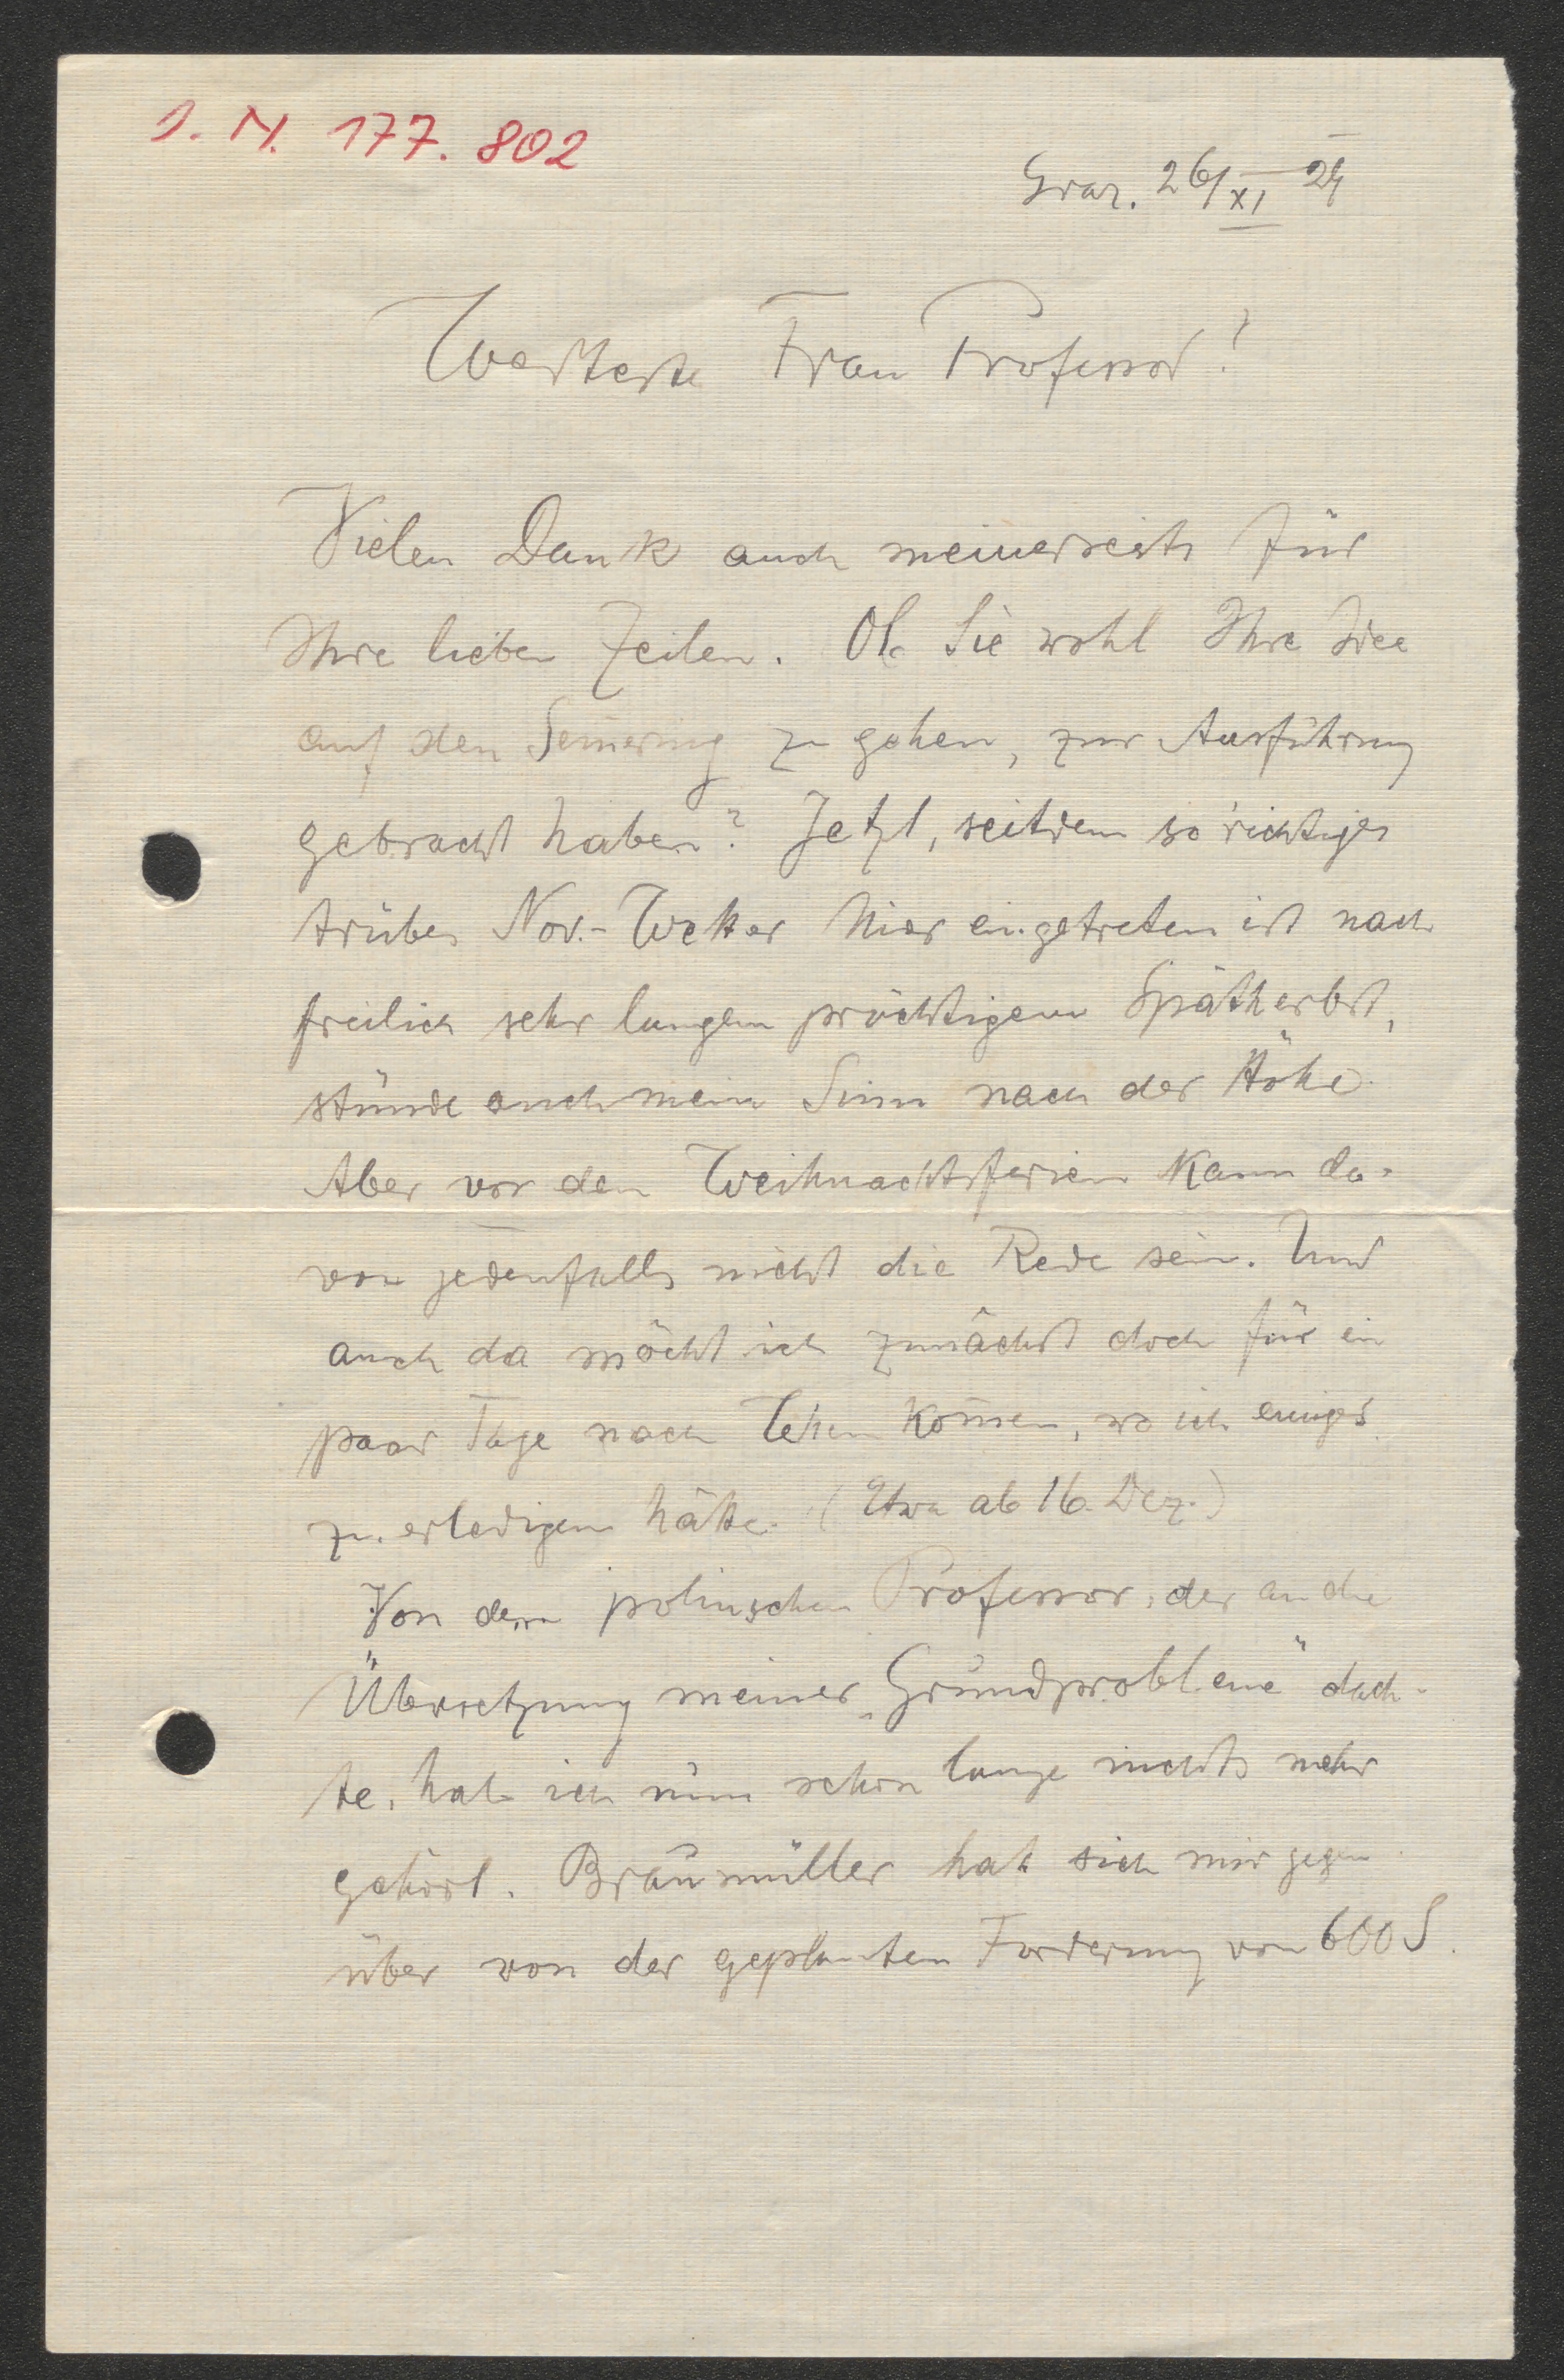 I. N. 177.802
Graz. 26/XI 29
Werteste Frau Professor!
Vielen Dank auch meinerseits für
Ihre lieben Zeilen. Ob Sie wohl Ihre Idee
auf den Semering zu gehen, zur Ausführung
gebracht haben? Jetzt, seitdem so richtiges
trübes Nov.-Wetter hier eingetreten ist nach
freilich sehr langem prächtigem Spätherbst,
stünde auch mein Sinn nach der Höhe.
Aber vor den Weihnachtsferien kann da-
von jedenfalls nicht die Rede sein. Und
auch da möcht ich zunächst doch für ein
paar Tage nach Wien kommen, wo ich einiges
zu erledigen hätte. (Etwa ab 16. Dez.)
Von dem polnischen Professor, der an die
Übersetzung meiner „Grundprobleme" dach-
te, hab ich nun schon lange nichts mehr
gehört. Braumüller hat sich mir gegen
über von der geplanten Forderung von 600 S.